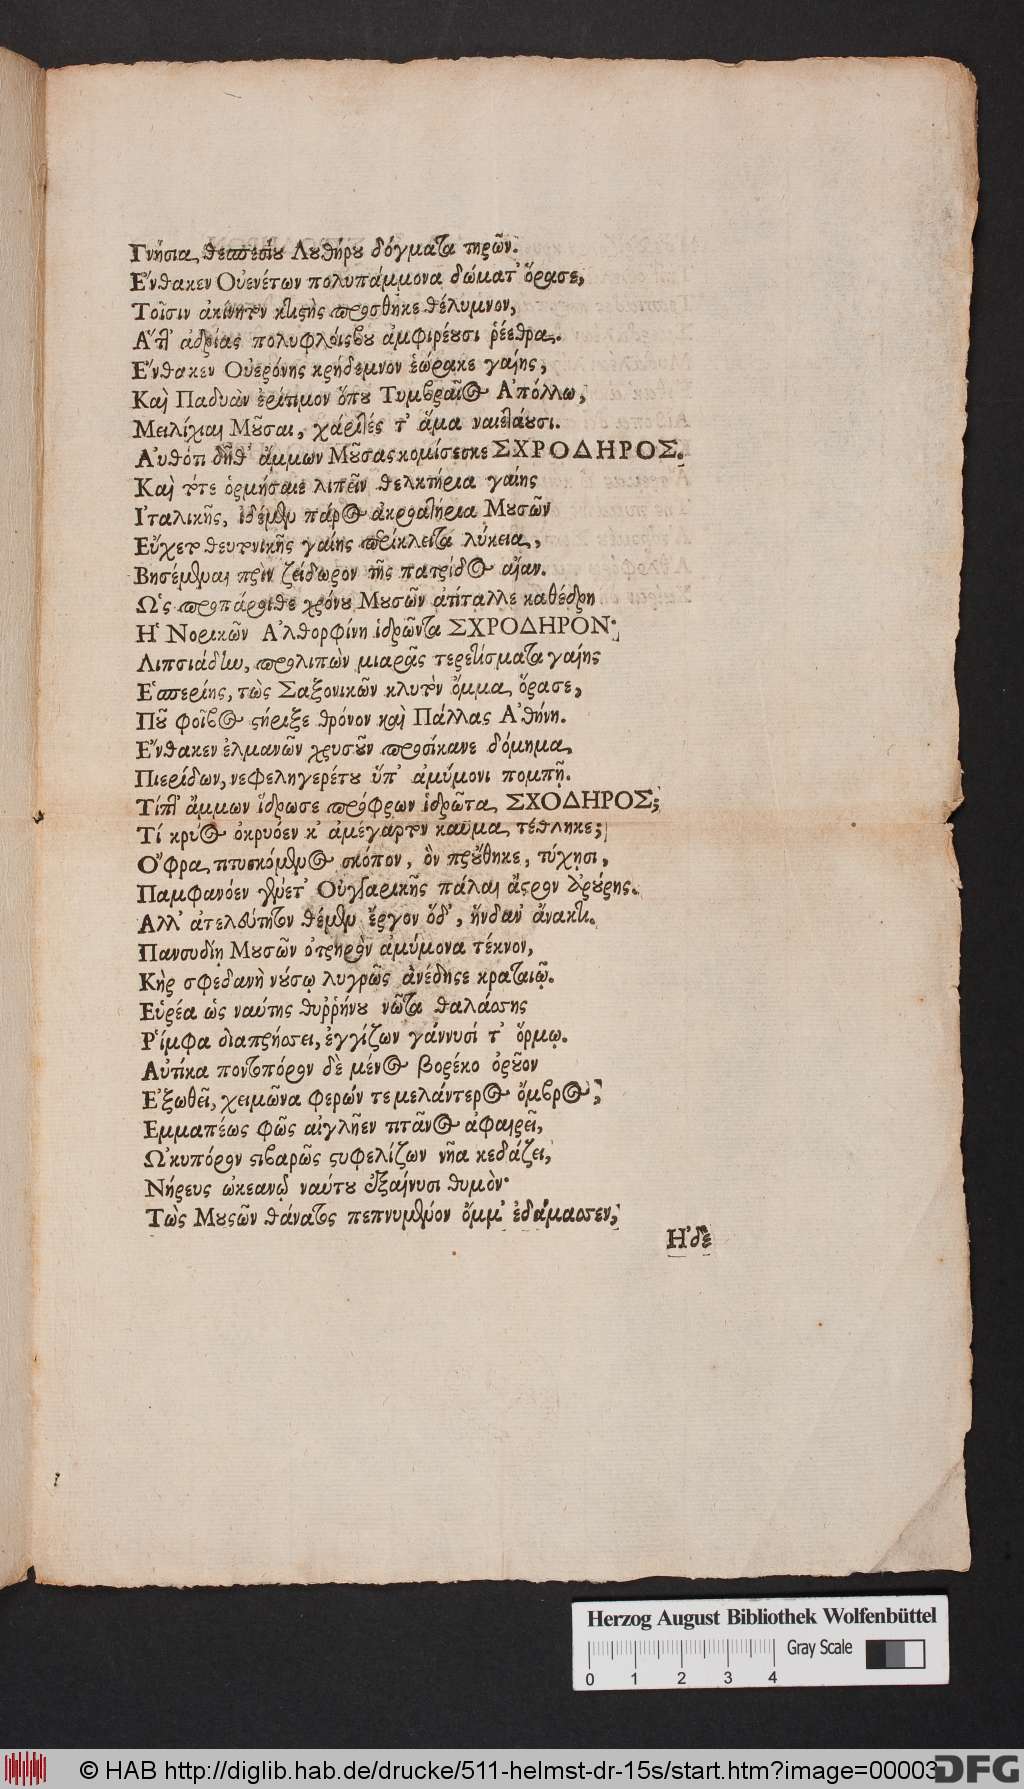 Γνήσια θεσπεσίου Λουθήρου δόγματα τηρῶν.
Ἔνθακεν Οὐενέτων πολυπάμμονα δώματ' ὅρασε,
Τοῖσιν ἀκίνητον κτιστὴς προσθηκε θέλυμνον,
ἀδρίας πολυφλοίσβου ἀμφιρέουσι ῥέεθρα.
Ἔνθακεν Οὐερόνης κρήδεμνον ἑώρακε γαίης,
Καὶ Παδυὰν ἐρίτιμον ὅπου Τυμβραῖος Ἀπόλλω,
Μειλίχιαι Μοῦσαι, χάριτές τ' ἅμα ναιετάουσι.
Αὐθότι δῆθ' ἄμμων Μοῦσας κομίσεσκε ΣΧΡΟΔΗΡΟΣ.
Καὶ τότε ὁρμήσατε λιπεῖν θελκτήρια γαίης
Ἰταλικῆς, ἰδέμεν πάρος ἀκροατήρια Μουσῶν
Εὔχετο θευτονικῆς γαίης περίκλειτα λύκεια,
Βησέμεναι πρὶν ζείδωρον τῆς πατρίδος αἶαν.
Ὡς προπάροιθε χρόνου Μουσῶν ἀτίταλλε καθέδρη
Ἡ Νορικῶν Ἀλθορφίνη ἱδρῶντα ΣΧΡΟΔΗΡΟΝ·
Λιπσιάδην, προλιπὼν μιαρᾶς τερετίσματα γαίης
Ἑσπερίης, τὼς Σαξονικῶν κλυτὸν ὄμμα ὅρασε,
Ποῦ φοῖβος στήριξε θρόνον καὶ Πάλλας Ἀθήνη.
Ἔνθακεν ἑλμανῶν χρυσοῦν προσίκανε δόμημα
Πιερίδων, νεφεληγερέτου ὕπ' ἀμύμονι πομπῇ.
Τίπτ' ἄμμων ἵδρωσε πρόφρων ἱδρῶτα ΣΧΟΔΗΡΟΣ;
Τί κρύος ὀκρυόεν κ' ἀμέγαρτον καῦμα τέθληκε;
Ὄφρα πτυσκόμενος σκόπον, ὃν προὔθηκε, τύχησι,
Παμφανόεν γένετ' Οὐγγαρικῆς πάλαι ἄστρον ἀρούρης.
Ἀλλ' ἀτελεύτητον θέμεν ἔργον ὅδ', ἥνδαν' ἄνακτι.
Πανσυδίῃ Μουσῶν ὀτρηρὸν ἀμύμονα τέκνον,
Κὴρ σφεδανὴ νούσῳ λυγρῶς ἀνέδησε κραταιῷ.
Εὐρέα ὡς ναύτης θυῤῥήνου νῶτα θαλάσσης
Ῥίμφα διαπρήσσει, ἐγγίζων γάννυσί τ' ὅρμῳ.
Αὐτίκα ποντοπόρον δὲ μένος βορέκο ὀροῦον
Ἐξωθεῖ, χειμῶνα φερών τε μελάντερος ὄμβρος;
Εμμαπέως φῶς αἰγλῆεν πιτᾶνος ἀφαιρεῖ,
Ὠκυπόρον στιβαρῶς στυφελίζων νῆα κεδάζει,
Νήρευς ὠκεανῷ ναύτου ἐξαίνυσι θυμὸν·
Τὼς Μουσῶν θάνατος πεπνυμένον ὄμμ' ἐδάμασσεν;
Ἠδὲ
Herzog August Bibliothek Wolfenbüttel
Gray Scale
0 1 2 3 4
© HAB http://diglib.hab.de/drucke/511-helmst-dr-15s/start.htm?image=00003
DFG